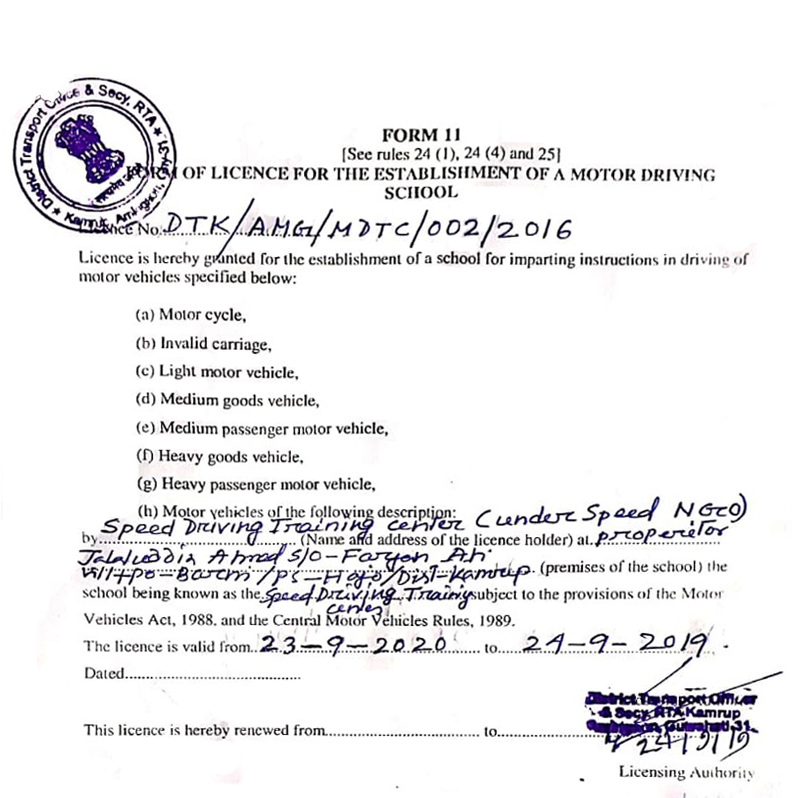 District Transport Office & Secy, RTA
FORM 11
[See rules 24 (1), 24 (4) and 25]
FORM OF LICENCE FOR THE ESTABLISHMENT OF A MOTOR DRIVING
SCHOOL
Licence No. DTK/AMG/MDTC/002/2016
Licence is hereby granted for the establishment of a school for imparting instructions in driving of
motor vehicles specified below:
(a) Motor cycle,
(b) Invalid carriage,
(c) Light motor vehicle,
(d) Medium goods vehicle,
(e) Medium passenger motor vehicle,
(f) Heavy goods vehicle,
(g) Heavy passenger motor vehicle,
(h) Motor vehicles of the following description:
Speed Driving Training center (under Speed NGO)
by.................... (Name and address of the licence holder) at. properitor
Jalaluddin Ahmed S/O-
Vill+po-Barchi/ps-Hajo/Dist-Kamrup. (premises of the school) the
school being known as the Speed Driving Training subject to the provisions of the Motor
center
Vehicles Act, 1988. and the Central Motor Vehicles Rules, 1989.
The licence is valid from. 23-9-2020 to 24-9-2019.
Dated................................
This licence is hereby renewed from............................ to
District Transport Officer
& Secy, RTA Kamrup
Guwahati-31.
Licensing Authority